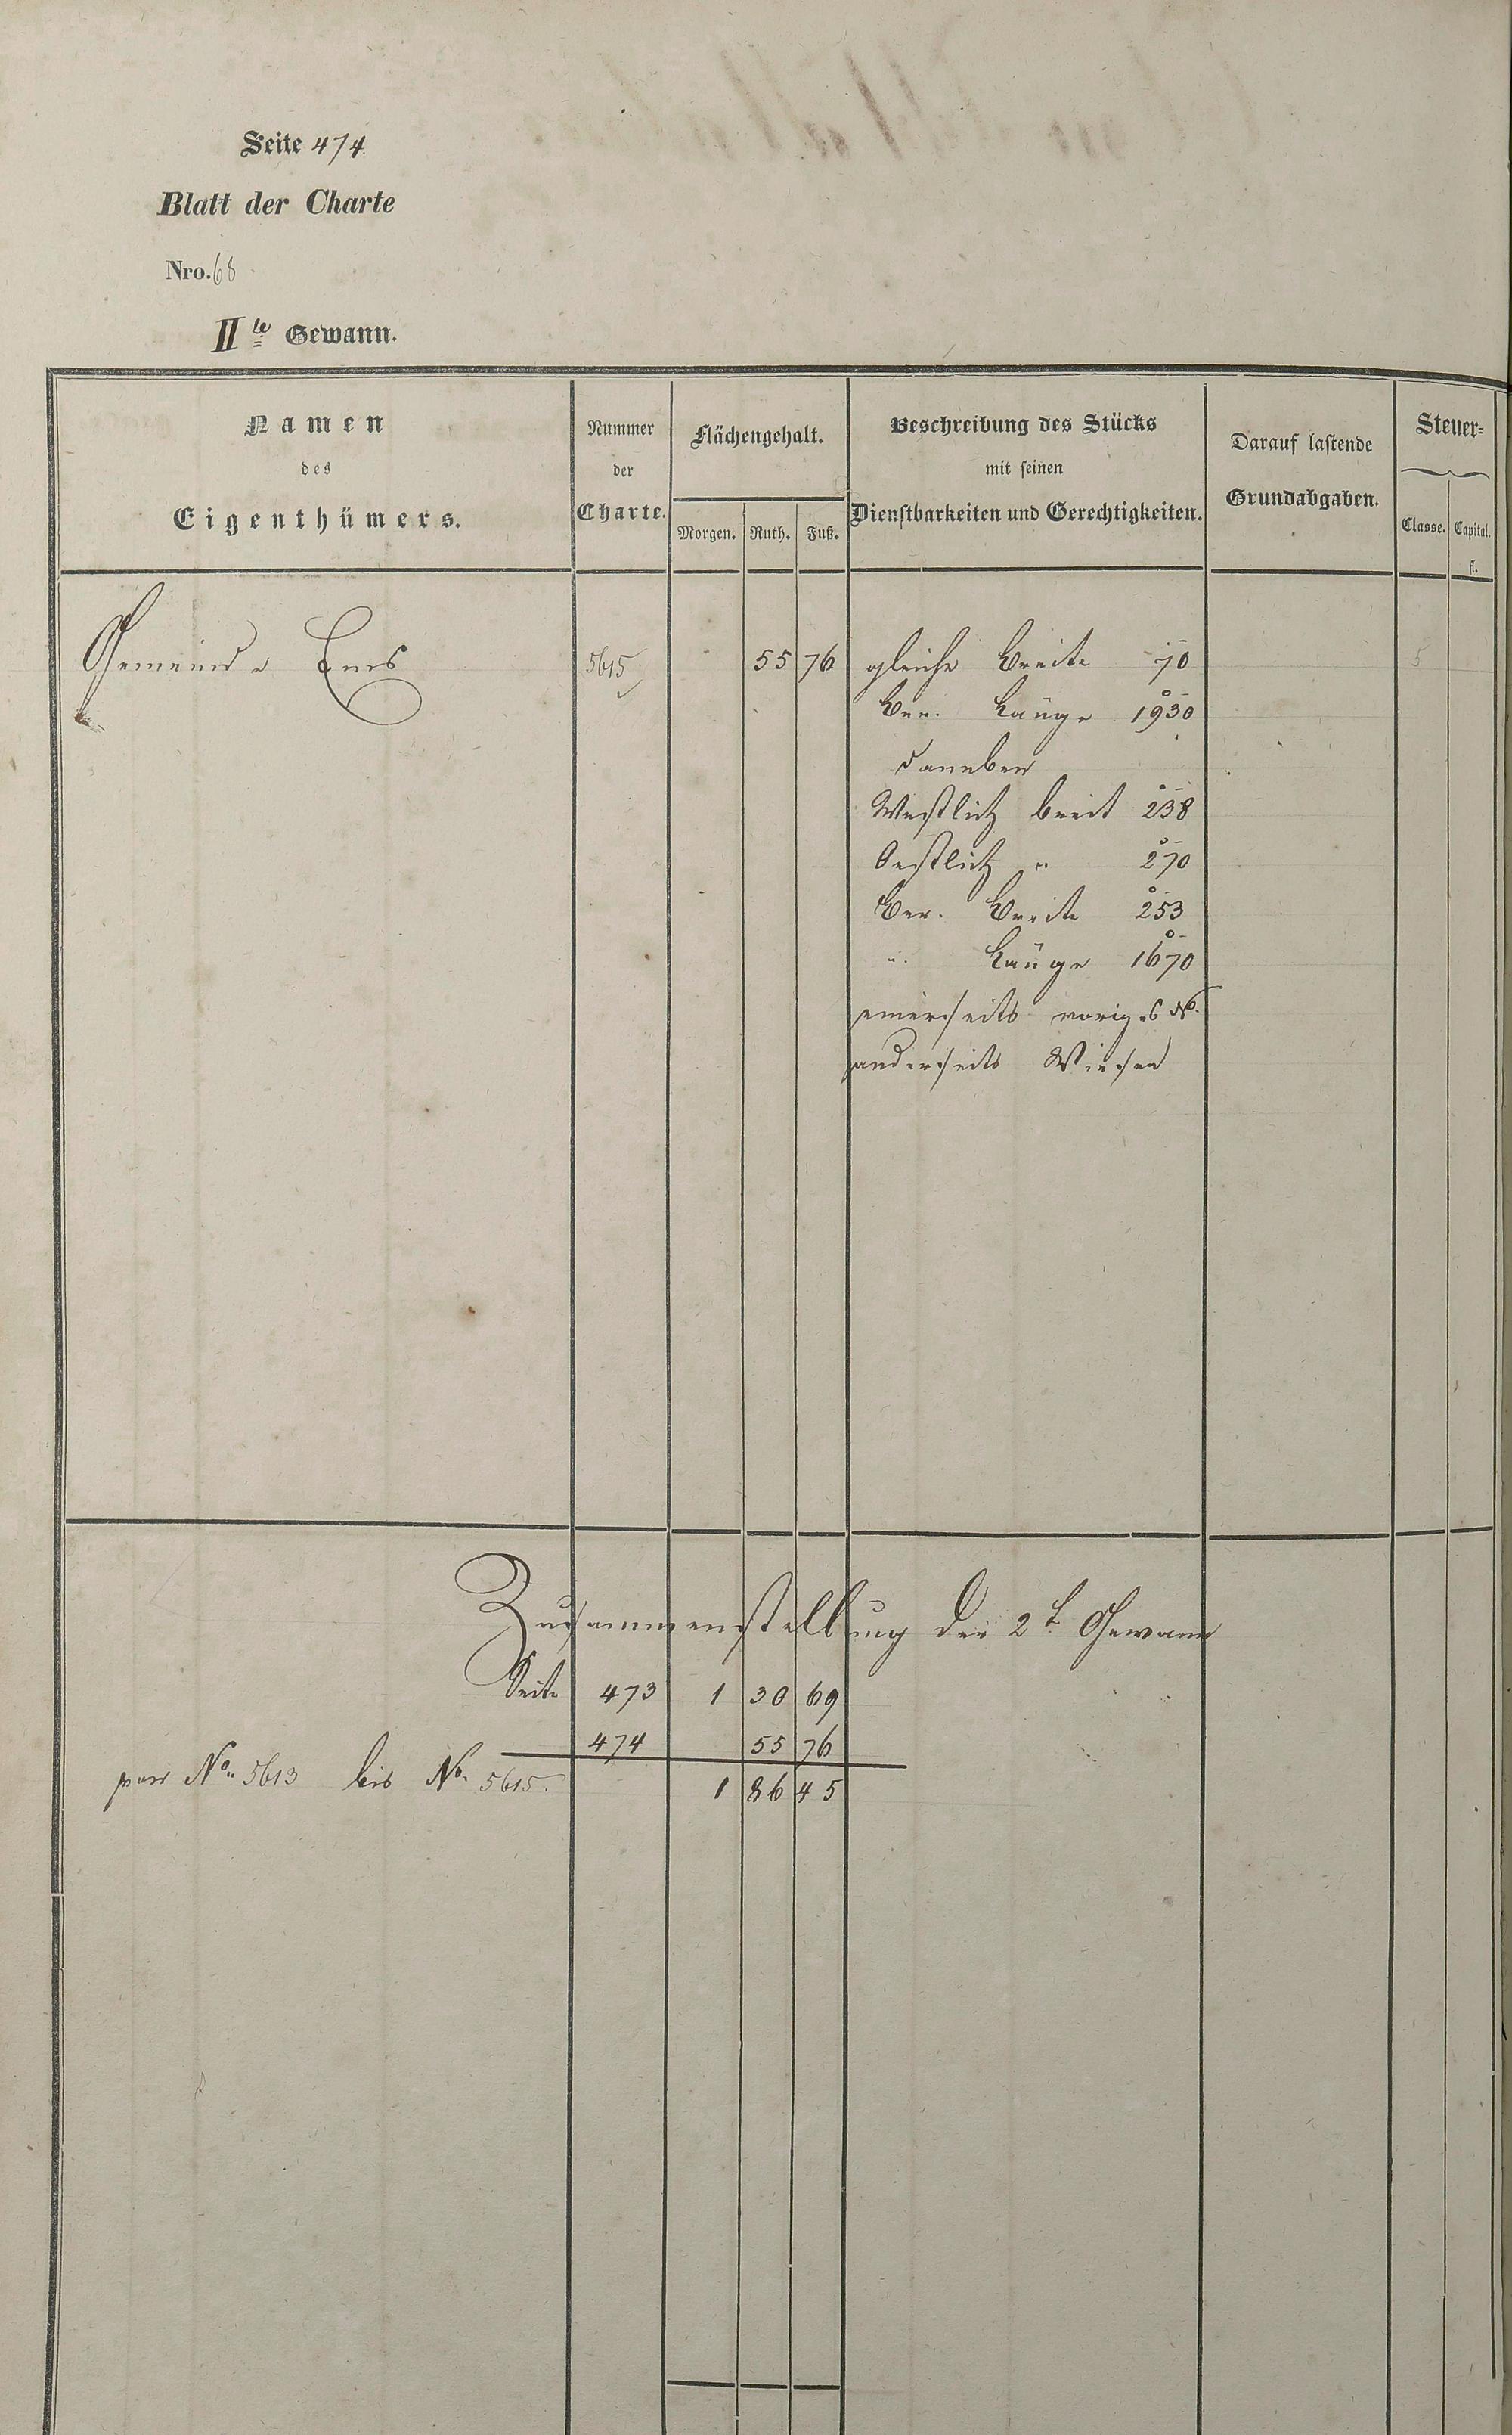 Seite 474
Blatt der Charte
Nro. 68
IIte Gewann.
Namen des Eigenthümers.
Nummer der Charte.
Flächengehalt.
Morgen. Ruth. Fuß.
Beschreibung des Stücks mit seinen Dienstbarkeiten und Gerechtigkeiten.
Darauf lastende Grundabgaben.
Steuer-
Classe. Capital.
fl.
Gemeinde Ems 5615 55 76 gleiche Breite 70 5
Ber. Länge 1930
daneben
Westlich breit 238
Oestlich " 270
Ber. Breite 253
" Länge 1670
einerseits voriges No.
anderseits Wiesen
Zusammenstellung der 2t. Gewann
Seite 473 1 30 69
474 55 76
von No. 5613 bis No. 5615. 1 86 45